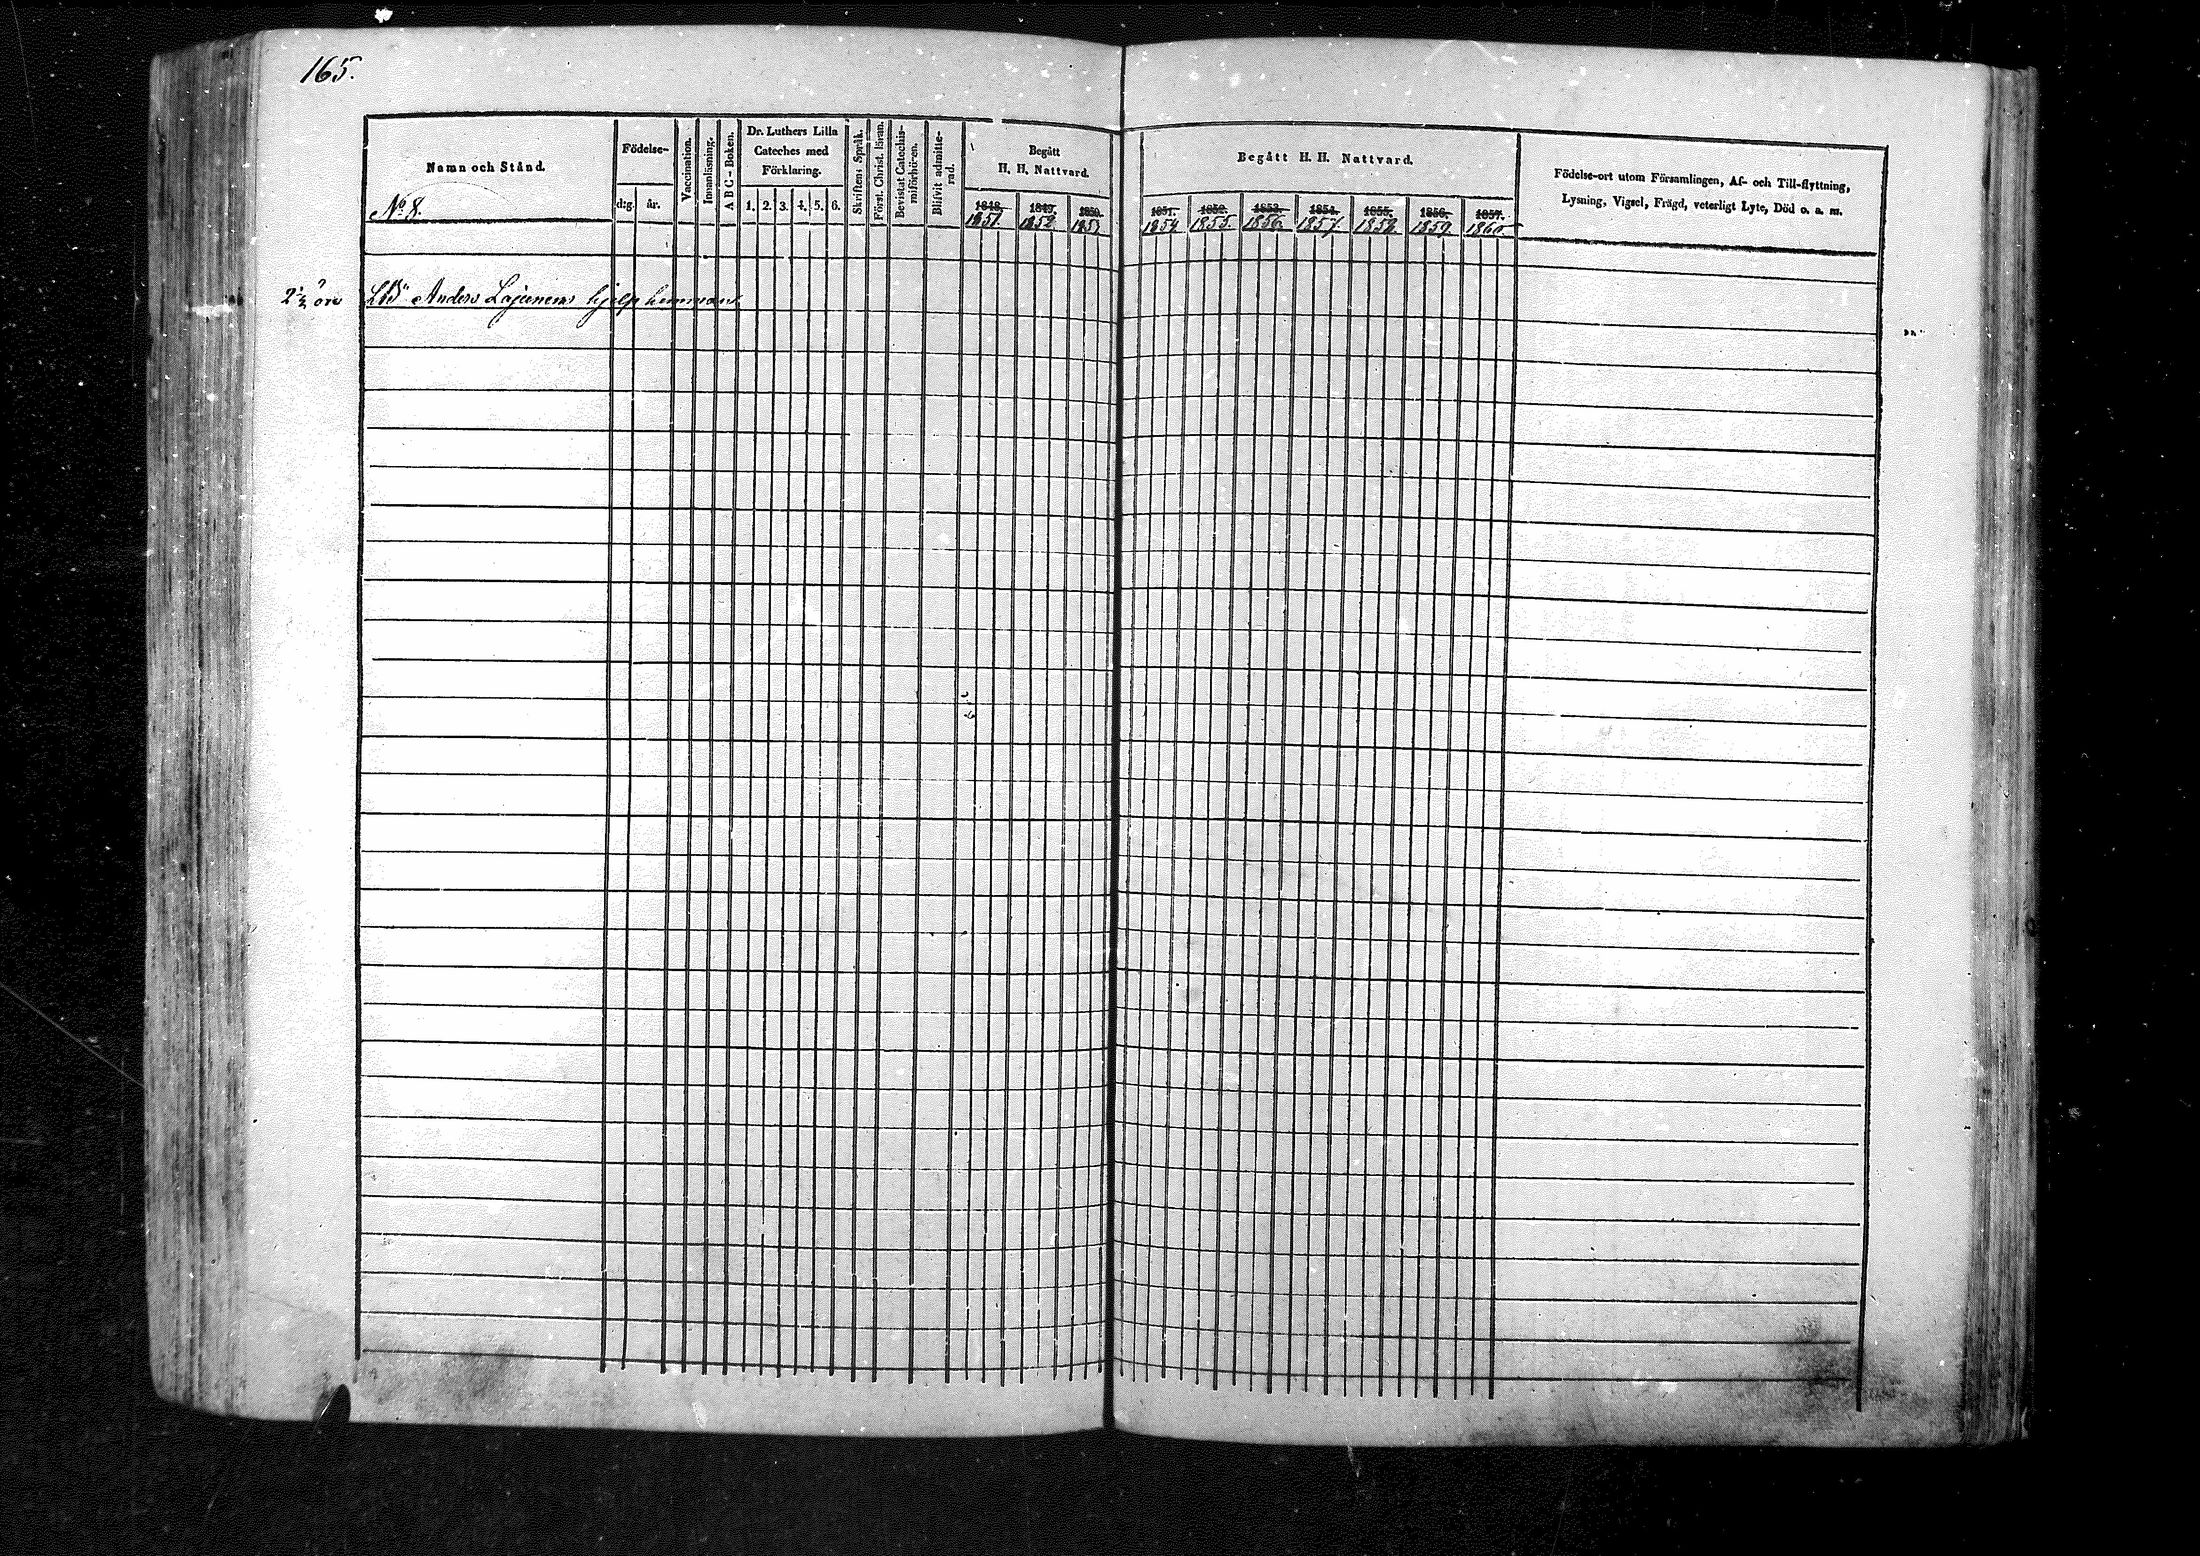 165.
Namn och Stånd.
No 8.
Födelse-
d:g. år.
Vaccination.
Innanläsning.
A B C - Boken.
Dr. Luthers Lilla
Cateches med
Förklaring.
1. 2. 3. 4. 5. 6.
Skriftens Språk.
Först. Christ. läran.
Bevistat Catechis-
miförhören.
Blifvit admitte-
rad.
Begått
H. H. Nattvard.
1848. 1849. 1850.
1851. 1852. 1853
Begått H. H. Nattvard.
1851. 1852. 1853. 1854. 1855. 1856. 1857.
1854 1855. 1856. 1857. 1858. 1859. 1860.
Födelse-ort utom Församlingen, Af- och Till-flyttning,
Lysning, Vigsel, Frägd, veterligt Lyte, Död o. a. m.
2½ öre Anders Lajunens hjelp hemman